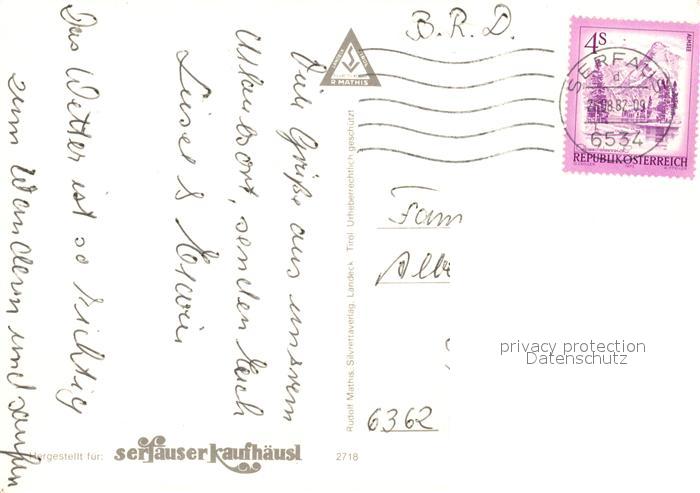 Viele Grüße aus unserm
Urlaubsort, senden Euch
Liesel & Erwin
Das Wetter ist so richtig
zum Wandern und saufen
B. R. D.
Fam
Alb
6362
4S
ALMSEE
REPUBLIK ÖSTERREICH
SERFAUS
d
82-09
6534
R MATHIS
Rudolf Mathis, Silvrettaverlag, Landeck Tirol Urheberrechtlich geschützt
Hergestellt für: serfauser kaufhäusl
2718
privacy protection
Datenschutz